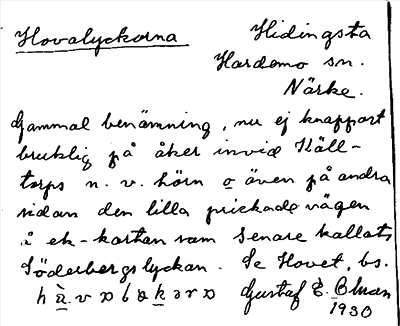 Hovalyckorna Hidingsta
Hardemo sn.
Närke.
Gammal benämning, nu ej knappast
bruklig på åker invid Käll-
torps n. v. hörn o även på andra
sidan den lilla prickade vägen
å ek-kartan som senare kallats
Söderbergslyckan. Se Hovet, bs.
Gustaf E. Ohman
1930